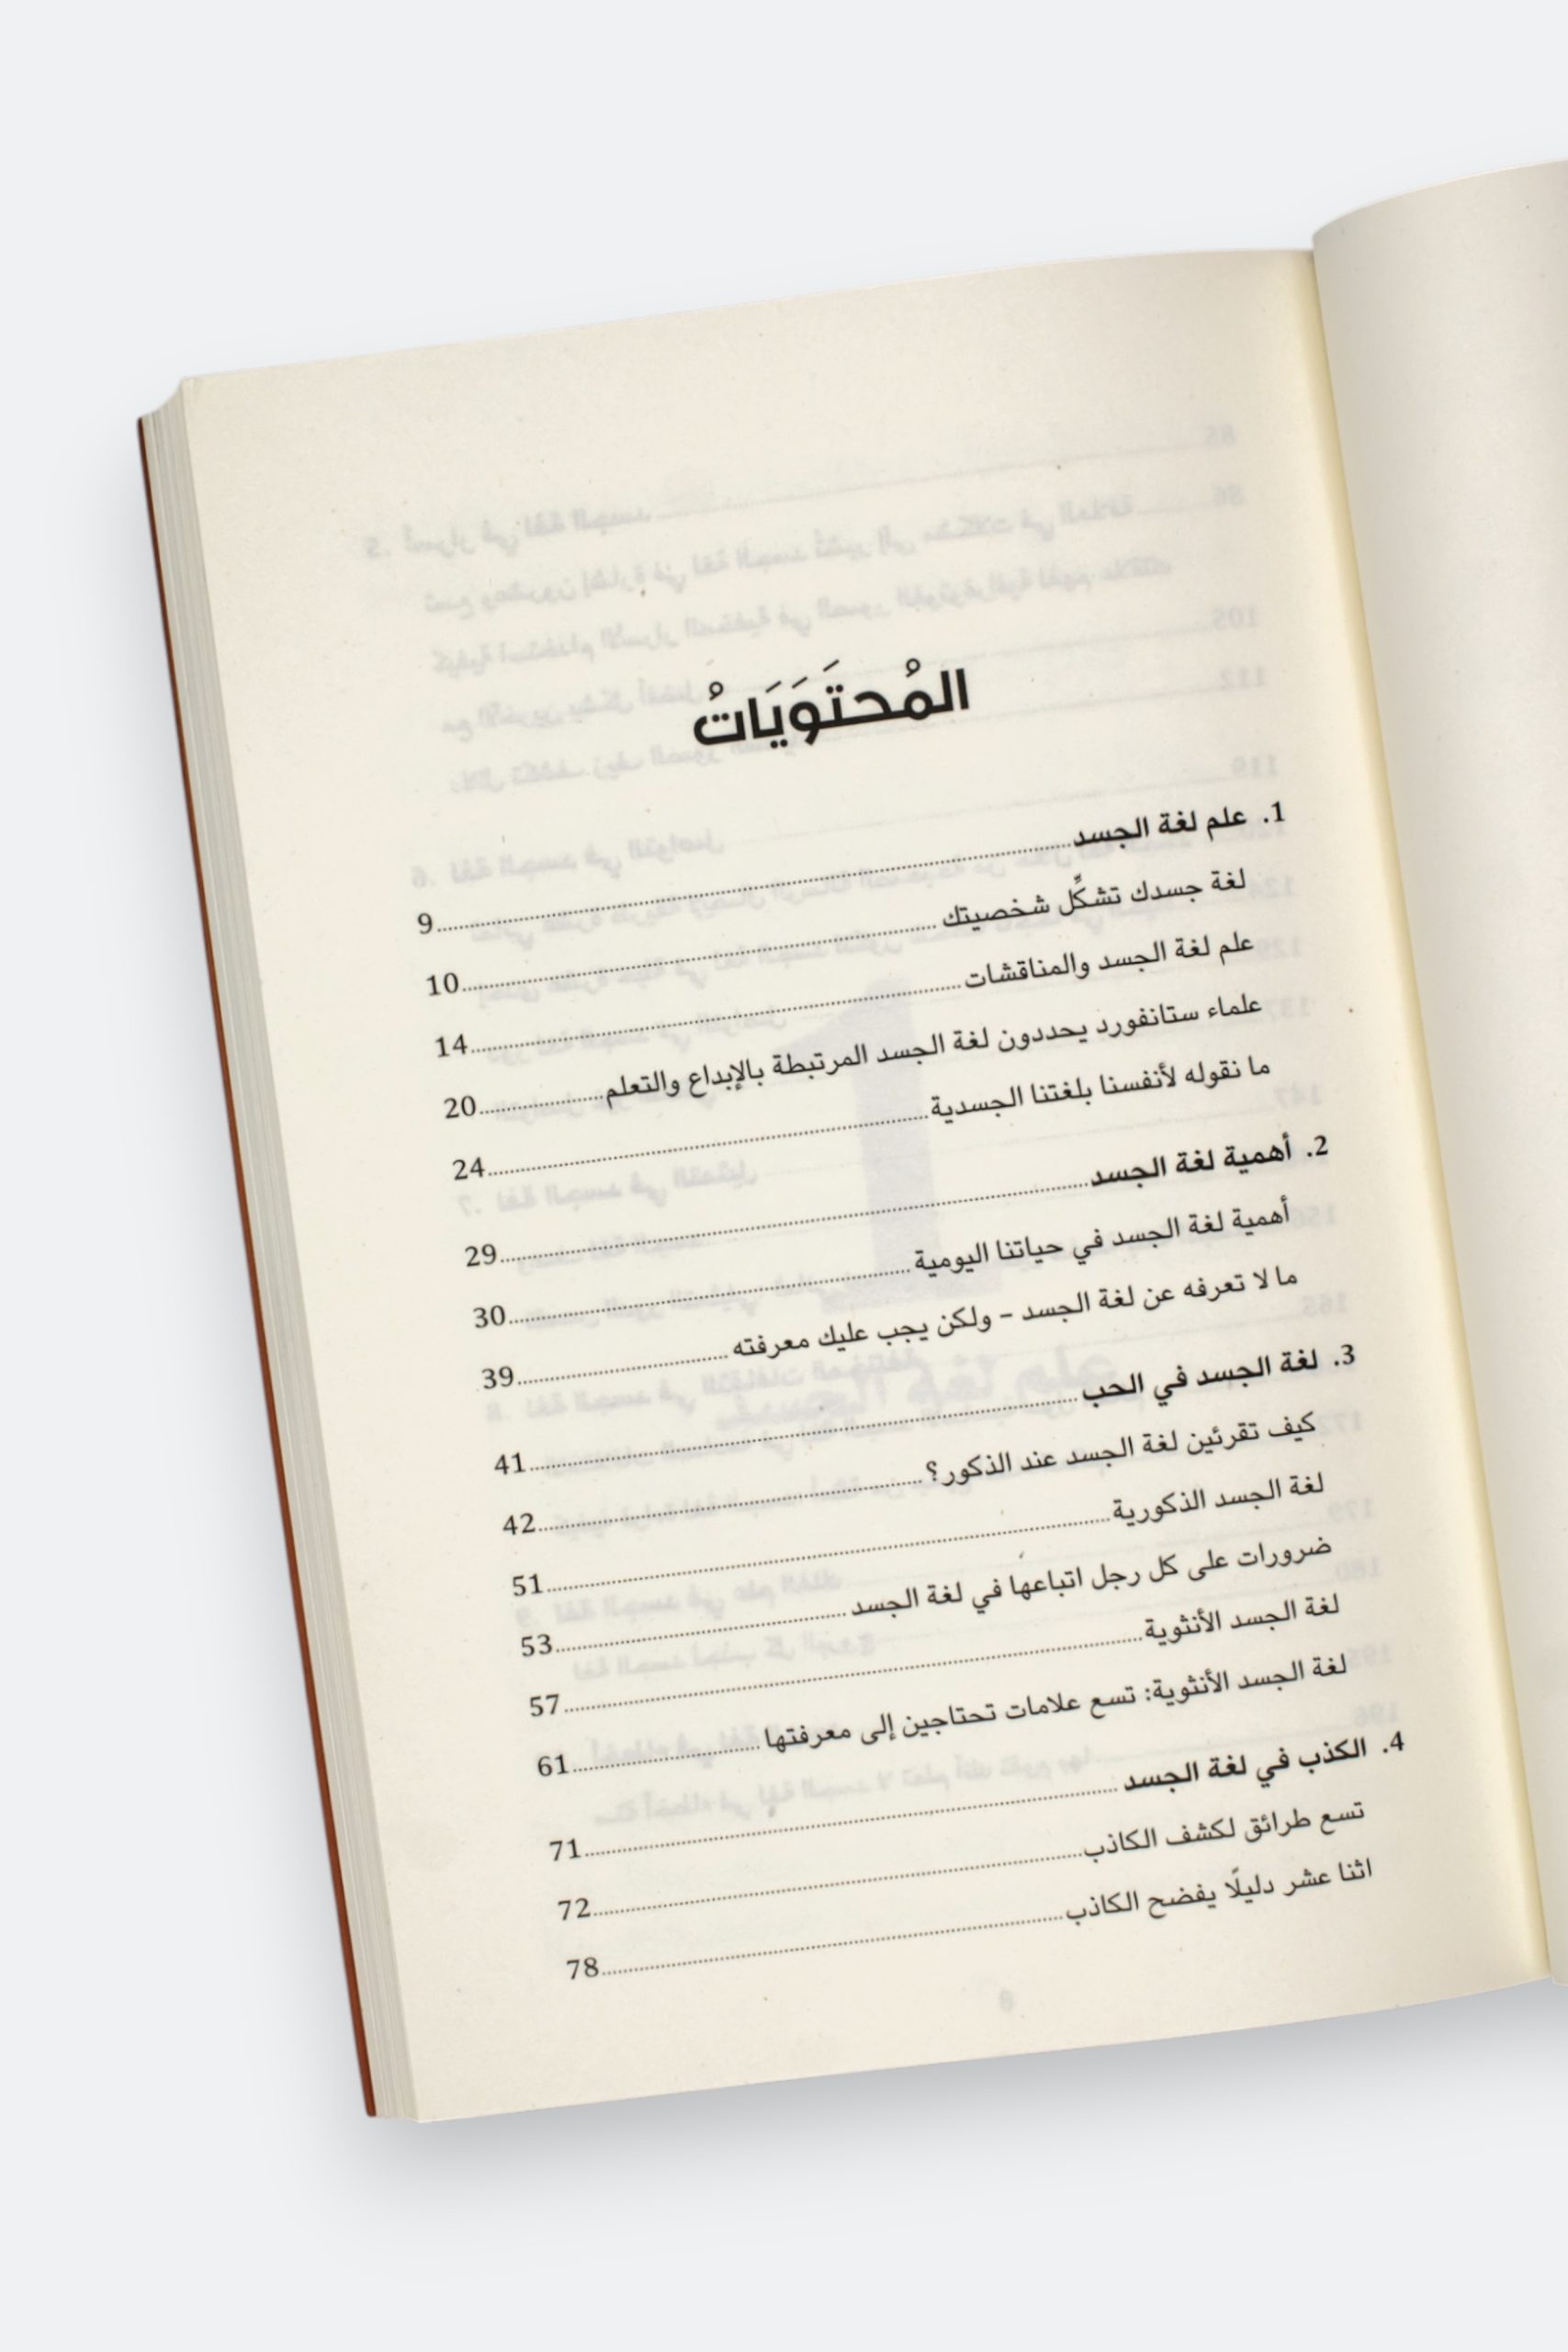 المُحتَوَيَاتُ
1. علم لغة الجسد ........ 9
لغة جسدك تشكِّل شخصيتك ........ 10
علم لغة الجسد والمناقشات ........ 14
علماء ستانفورد يحددون لغة الجسد المرتبطة بالإبداع والتعلم ........ 20
ما نقوله لأنفسنا بلغتنا الجسدية ........ 24
2. أهمية لغة الجسد ........ 29
أهمية لغة الجسد في حياتنا اليومية ........ 30
ما لا تعرفه عن لغة الجسد – ولكن يجب عليك معرفته ........ 39
3. لغة الجسد في الحب ........ 41
كيف تقرئين لغة الجسد عند الذكور؟ ........ 42
لغة الجسد الذكورية ........ 51
ضرورات على كل رجل اتباعها في لغة الجسد ........ 53
لغة الجسد الأنثوية ........ 57
لغة الجسد الأنثوية: تسع علامات تحتاجين إلى معرفتها ........ 61
4. الكذب في لغة الجسد ........ 71
تسع طرائق لكشف الكاذب ........ 72
اثنا عشر دليلًا يفضح الكاذب ........ 78